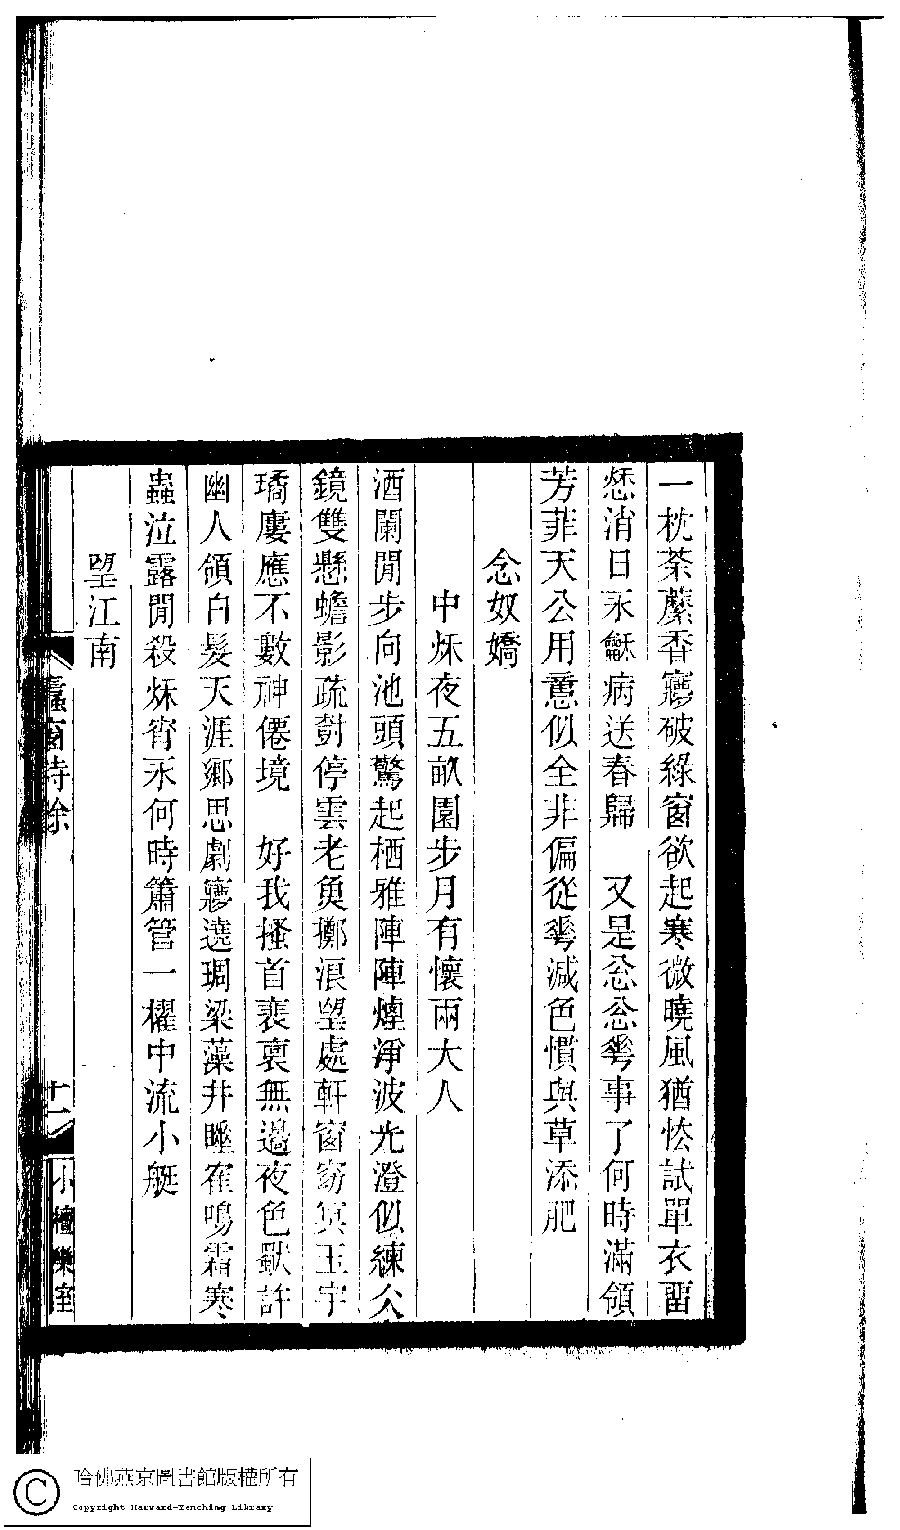 一枕荼蘪香㝱破綠窗欲起寒微曉風猶忪試單衣畱
愁消日永龢病送春歸　又是忩忩蕚事了何時滿領
芳菲天公用意似全非偏從蕚減色慣與草添肥
念奴嬌
中秌夜五畝園步月有懷兩大人
酒闌閒步向池頭驚起栖雅陣陣煙淨波光澄似練公
鏡雙懸蟾影疏尌停雲老魚擲浪朢處軒窗窈冥玉宇
璚廔應不數神僊境　好我搔首裵裛無邊夜色歐許
幽人領白髮天涯鄉思劇㝱遶琱梁藻井睡崔鳴霜寒
蟲泣露閒殺秌宵永何時簫管一櫂中流小艇
朢江南
蠹窗詩餘
十一
小檀欒室
哈佛燕京圖書館版權所有
Copyright Harvard-Yenching Library